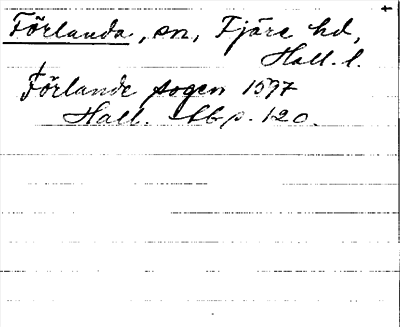 Förlanda, sn, Fjäre hd,
Hall. l.
Förlande sogen 1597
Hall. Lb p. 120.